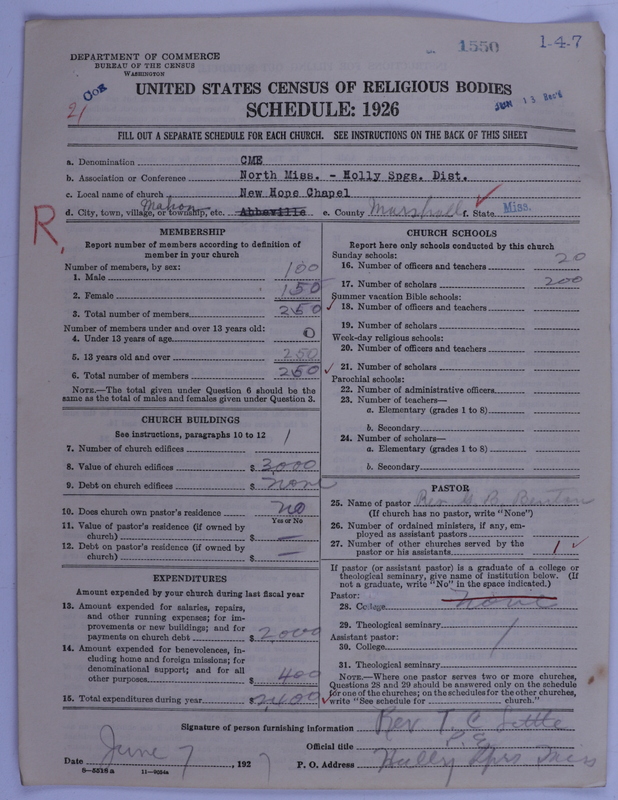 1550
1-4-7
DEPARTMENT OF COMMERCE
BUREAU OF THE CENSUS
WASHINGTON
Cor
21
UNITED STATES CENSUS OF RELIGIOUS BODIES
JUN 13 Rec'd
SCHEDULE: 1926
FILL OUT A SEPARATE SCHEDULE FOR EACH CHURCH. SEE INSTRUCTIONS ON THE BACK OF THIS SHEET
a. Denomination CME
b. Association or Conference North Miss. - Holly Spgs. Dist.
c. Local name of church New Hope Chapel
d. City, town, village, or township, etc. Mahon Abbeville e. County Marshall f. State Miss.
R.
MEMBERSHIP
Report number of members according to definition of
member in your church
Number of members, by sex:
1. Male 100
2. Female 150
3. Total number of members 250
Number of members under and over 13 years old:
4. Under 13 years of age 0
5. 13 years old and over 250
6. Total number of members 250
NOTE.—The total given under Question 6 should be the
same as the total of males and females given under Question 3.
CHURCH BUILDINGS
See instructions, paragraphs 10 to 12
7. Number of church edifices 1
8. Value of church edifices $ 3000
9. Debt on church edifices $ none
10. Does church own pastor's residence no
Yes or No
11. Value of pastor's residence (if owned by
church) $ —
12. Debt on pastor's residence (if owned by
church) $ —
EXPENDITURES
Amount expended by your church during last fiscal year
13. Amount expended for salaries, repairs,
and other running expenses; for im-
provements or new buildings; and for
payments on church debt $ 2000
14. Amount expended for benevolences, in-
cluding home and foreign missions; for
denominational support; and for all
other purposes $ 400
15. Total expenditures during year $ 2400
CHURCH SCHOOLS
Report here only schools conducted by this church
Sunday schools:
16. Number of officers and teachers 20
17. Number of scholars 200
Summer vacation Bible schools:
18. Number of officers and teachers
19. Number of scholars
Week-day religious schools:
20. Number of officers and teachers
21. Number of scholars
Parochial schools:
22. Number of administrative officers
23. Number of teachers—
a. Elementary (grades 1 to 8)
b. Secondary
24. Number of scholars—
a. Elementary (grades 1 to 8)
b. Secondary
PASTOR
25. Name of pastor Rev. G. B. Benton
(If church has no pastor, write "None")
26. Number of ordained ministers, if any, em-
ployed as assistant pastors
27. Number of other churches served by the
pastor or his assistants 1
If pastor (or assistant pastor) is a graduate of a college or
theological seminary, give name of institution below. (If
not a graduate, write "No" in the space indicated.)
Pastor:
28. College none
29. Theological seminary
Assistant pastor:
30. College
31. Theological seminary
NOTE.—Where one pastor serves two or more churches,
Questions 28 and 29 should be answered only on the schedule
for one of the churches; on the schedules for the other churches,
write "See schedule for church."
Signature of person furnishing information Rev T. C. Little
Official title P. E.
Date June 7, 1927 P. O. Address Holly Sprs Miss
8—5519a 11—9034a